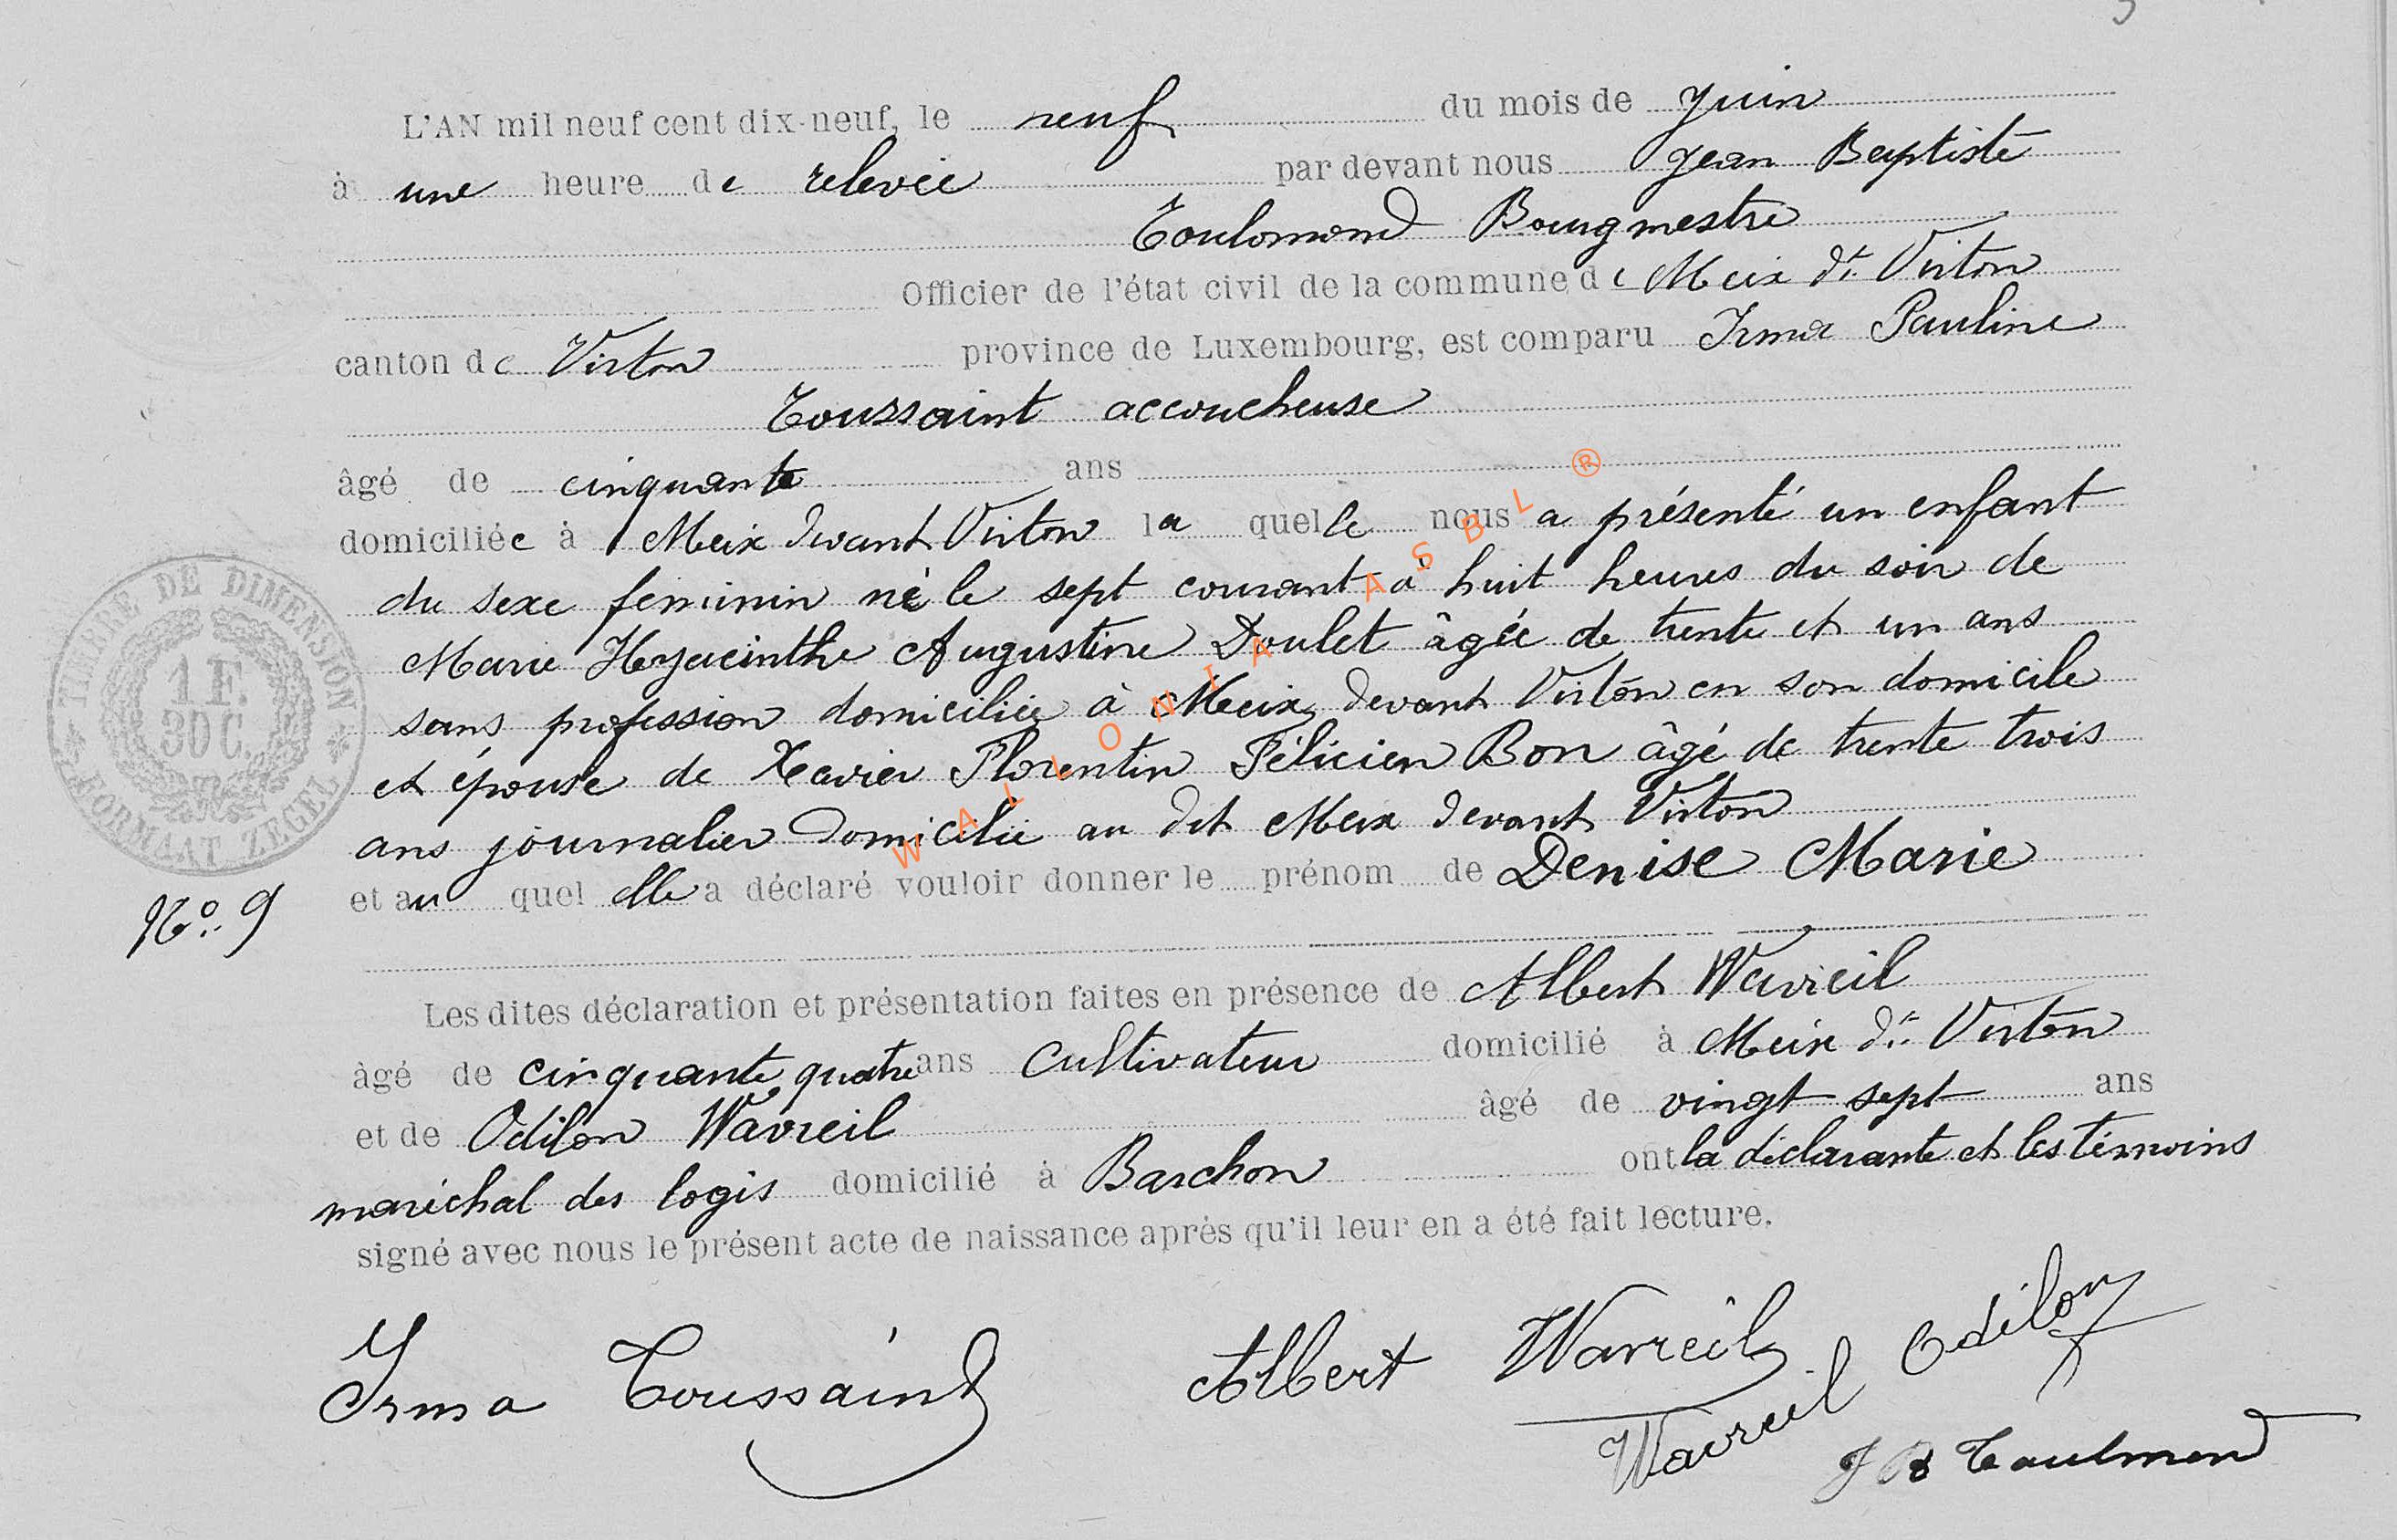 L'AN mil neuf cent dix-neuf, le neuf du mois de Juin
à une heure de relevée par devant nous Jean Baptiste
Toulomond Bourgmestre
Officier de l'état civil de la commune de Meix dt Virton
canton de Virton province de Luxembourg, est comparu Irma Pauline
Toussaint accoucheuse
âgé de cinquante ans
domiciliée à Meix devant Virton la quelle nous a présenté un enfant
du sexe féminin né le sept courant à huit heures du soir de
Marie Hyacinthe Augustine Doulet âgée de trente et un ans
sans profession domiciliée à Meix devant Virton en son domicile
et épouse de Xavier Florentin Félicien Bon âgé de trente trois
ans journalier domicilié au dit Meix devant Virton
et au quel elle a déclaré vouloir donner le prénom de Denise Marie
No. 9
Les dites déclaration et présentation faites en présence de Albert Wavreil
âgé de cinquante quatre ans cultivateur domicilié à Meix dt Virton
et de Odilon Wavreil âgé de vingt sept ans
maréchal des logis domicilié à Barchon ont la déclarante et les témoins
signé avec nous le présent acte de naissance après qu'il leur en a été fait lecture.
Irma Toussaint Albert Wavreil
Wavreil Odilon
J B Toulmond
TIMBRE DE DIMENSION
1 F.
30 C.
FORMAAT ZEGEL
WALLONIA ASBL ®